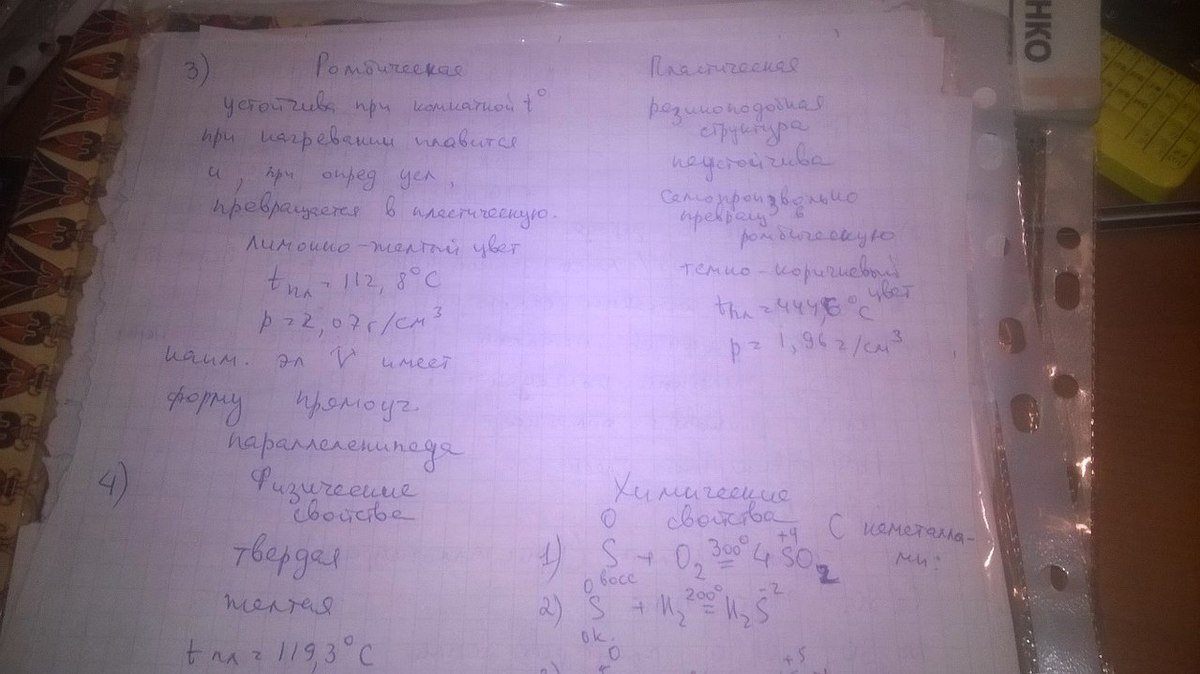 НКО
3) Ромбическая
устойчива при комнатной t°
при нагревании плавится
и, при опред усл,
превращается в пластическую.
лимонно-желтый цвет
tпл = 112,8°C
p = 2,07г/см³
наим. эл V имеет
форму прямоуг.
параллелепипеда
Пластическая
резиноподобная
структура
неустойчива
самопроизвольно
превращ в
ромбическую
темно-коричневый
цвет
tпл = 444,6°C
p = 1,96г/см³
4) Физические
свойства
твердая
желтая
tпл = 119,3°C
Химические
свойства
С неметалла-
ми:
1) S⁰ + O₂ 300° = 4 S⁺⁴O₂
восс
2) S⁰ + H₂ 200° = H₂S⁻²
ок.
0 +5